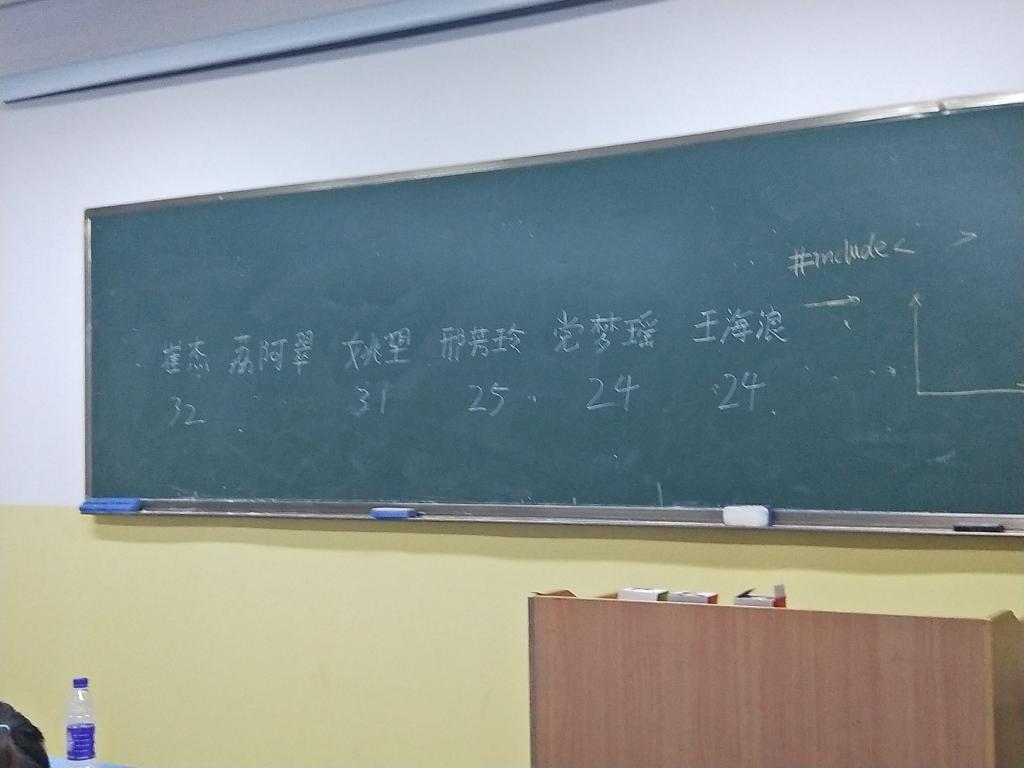 #include< >
崔杰 荔阿翠 姚望 邢芳玲 党梦瑶 王海浪
32 31 25 24 24